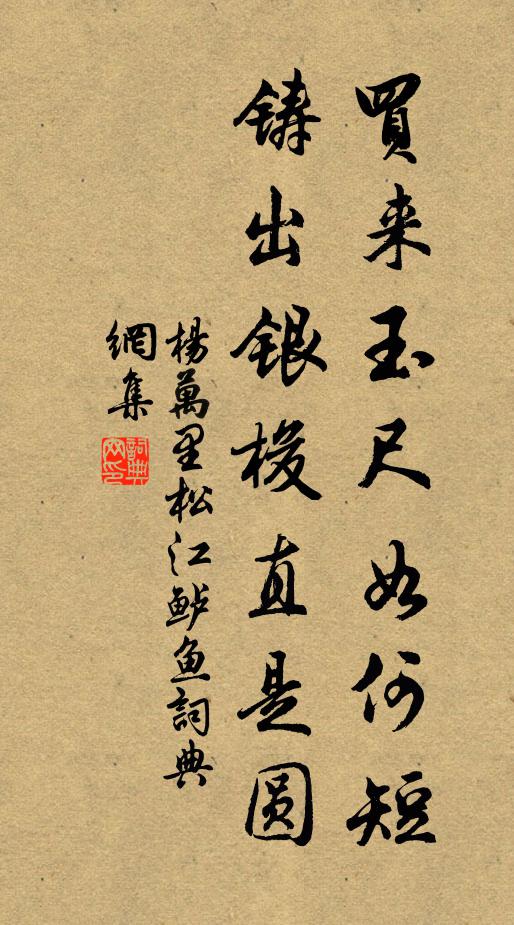 買来玉尺如何短
鋳出银梭直是圆
楊萬里松江鲈魚詞典
網集
詞典
网印